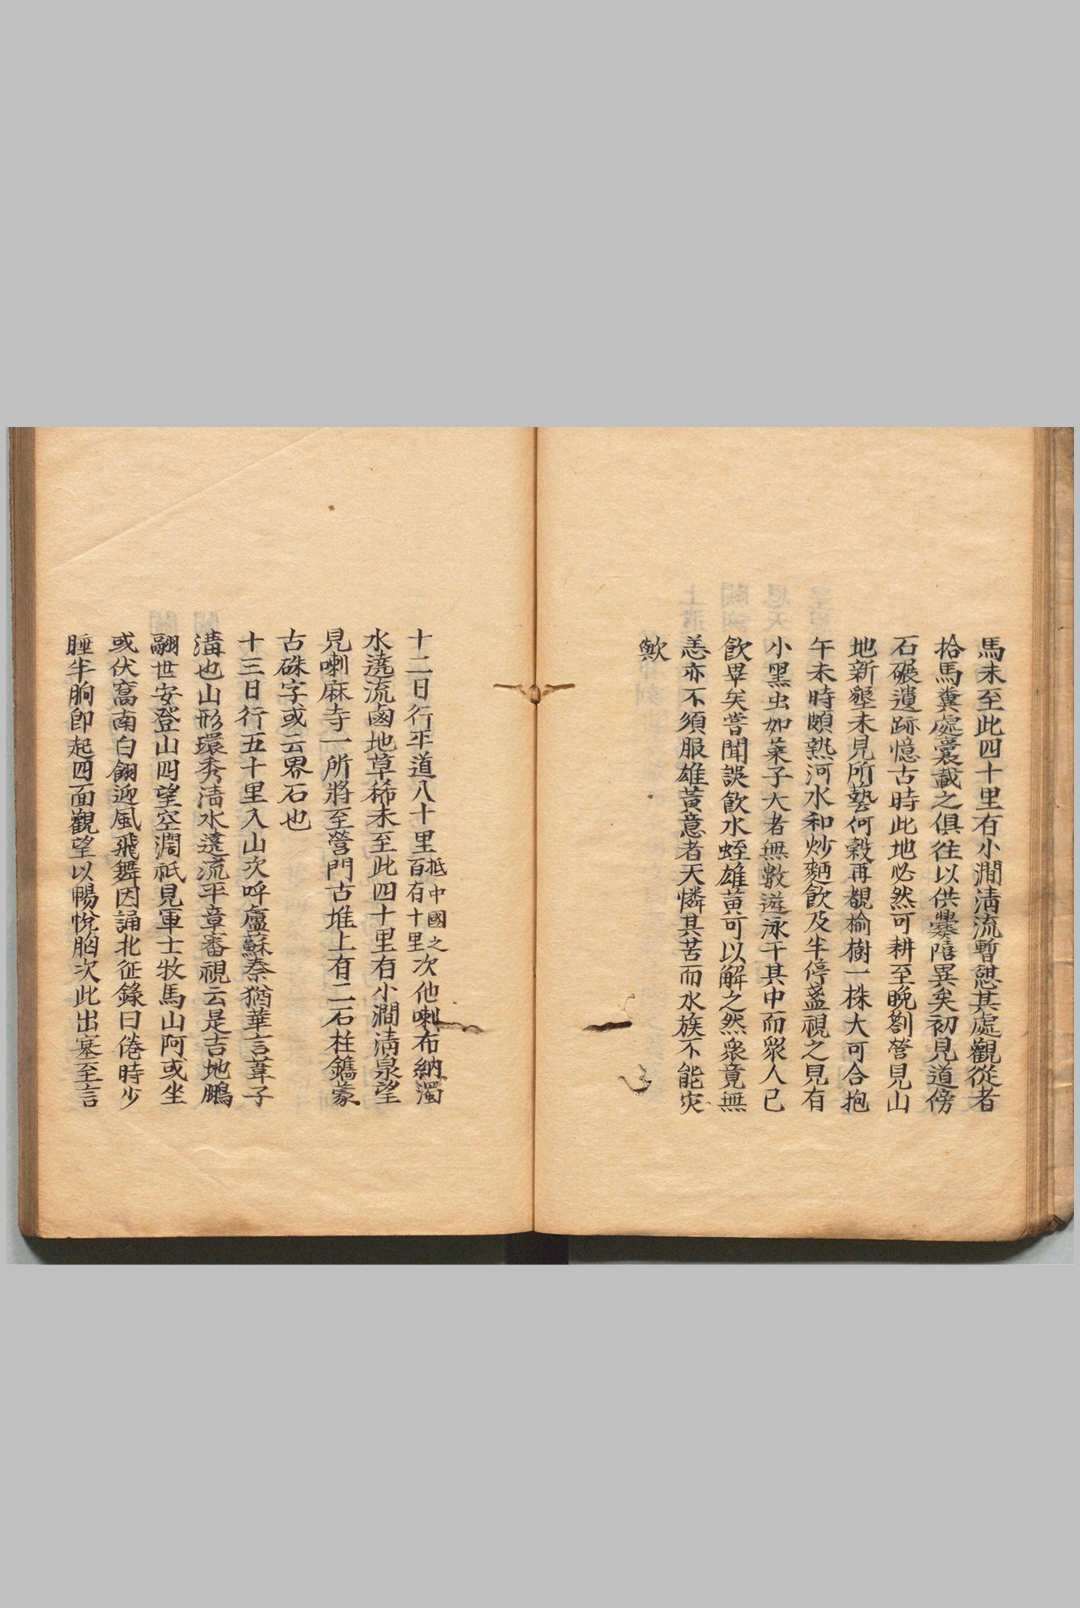 馬未至此四十里有小澗清流暫憇其處觀從者
拾馬糞處囊載之俱往以供爨陪異矣初見道傍
石碾遺跡憶古時此地必然可耕至晚劄營見山
地新墾未見所藝何穀再覩榆樹一株大可合抱
午未時頗熱河水和炒麵飲及半停盞視之見有
小黑虫如菜子大者無數遊泳于其中而衆人已
飲畢矣嘗聞誤飲水蛭雄黃可以解之然衆竟無
恙亦不須服雄黃意者天憐其苦而水族不能灾
歟
十二日行平道八十里抵中國之百有十里次他喇布納濁
水遶流鹵地草稀未至此四十里有小澗清泉望
見喇麻寺一所將至營門古堆上有二石柱鐫蒙
古硃字或云界石也
十三日行五十里入山次呼盧蘇泰猶華言葦子
溝也山形環秀清水遶流平章審視云是吉地鵬
翮世安登山四望空濶祇見軍士牧馬山阿或坐
或伏蒿南白翎迎風飛舞因誦北征錄曰倦時少
睡半胸卽起四面觀望以暢悅胸次此出塞至言